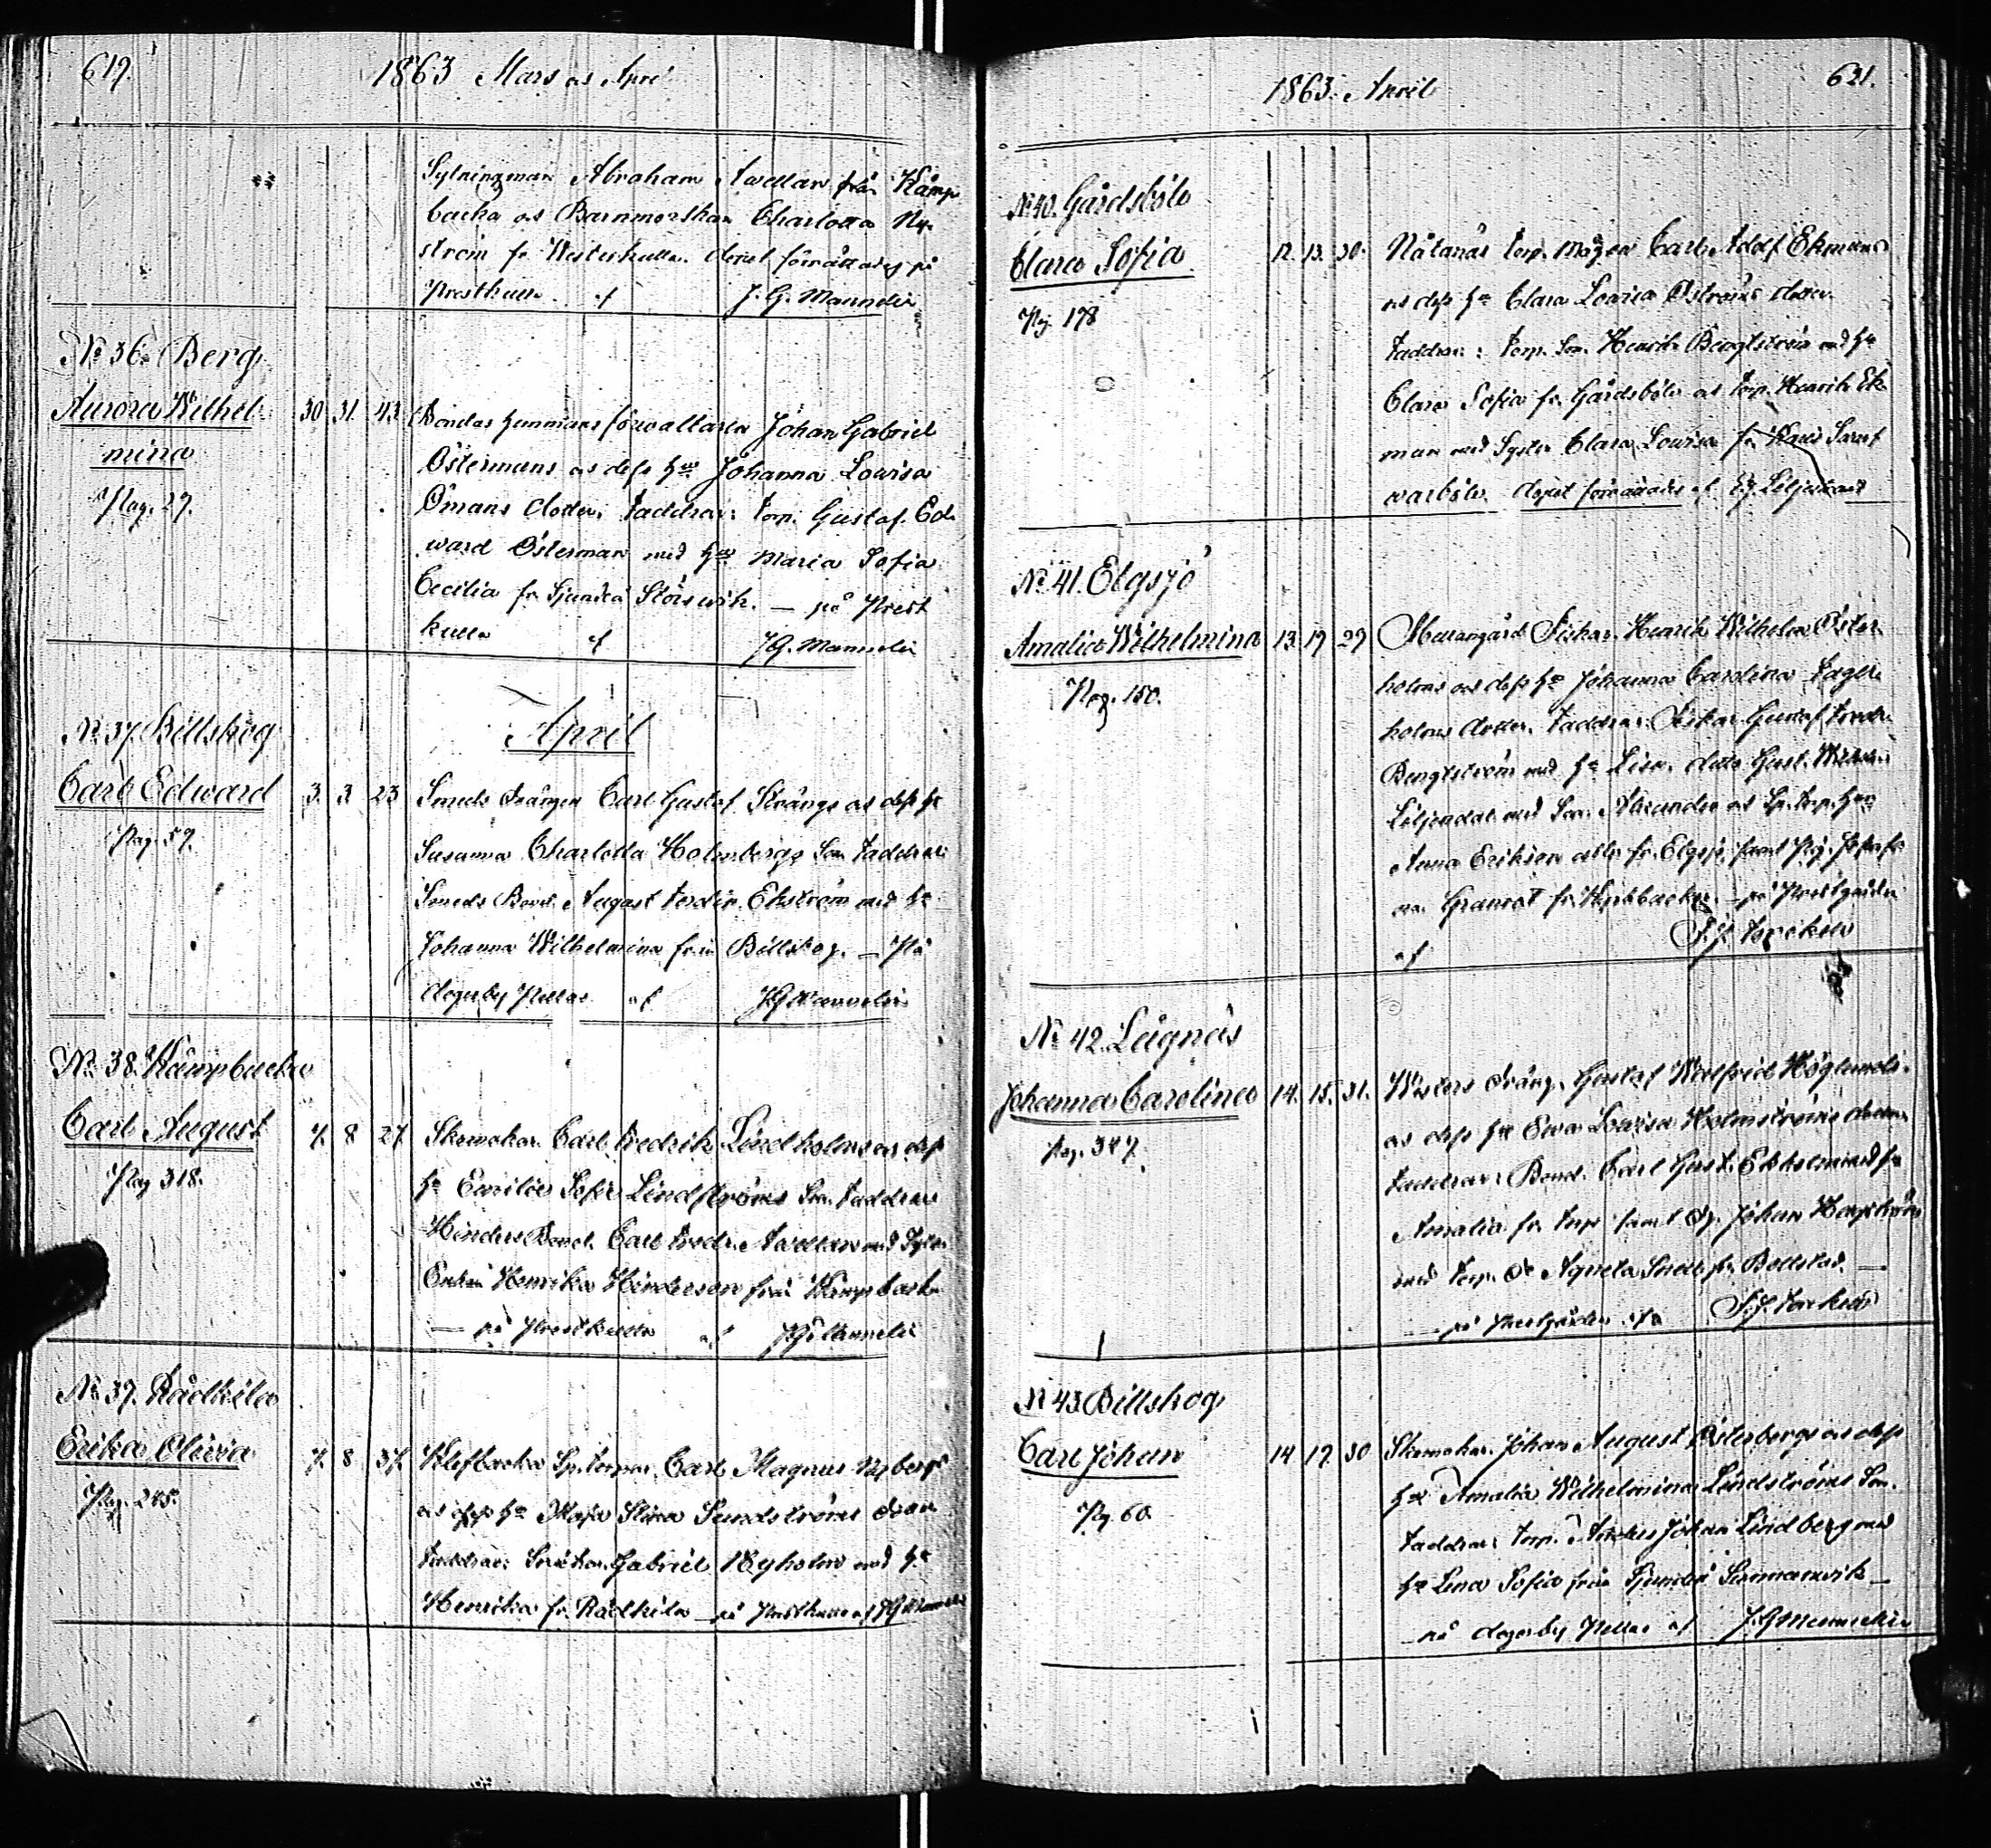 619.
1863 Mars och April
Sytningman Abraham Avellan från Kämp
backa och Barnmorskan Charlotta Ny-
ström fr Westerkulla. dopet förrättades på
Prestkulla af J. G. Mannelin
No 36. Berg
Aurora Wilhel- 30 31. 43. Bondas hemmans förvaltaren Johan Gabriel
mina Östermans och dess hu Johanna Lowisa
Pag. 29. Ömans dotter. Faddrar: Torp. Gustaf Ed-
ward Österman med hu Maria Sofia
Cecilia fr Sjundeå Störsvik. — på Prest
kulla af J G. Mannelin
No 37. Billskog April
Carl Edward 3. 3. 23 Smeds Drängen Carl Gustaf Strångs och dess hu
Pag. 59. Susanna Charlotta Holmbergs Son Faddrar
Smeds Bond. August Ferdin. Ekström med hu
Johanna Wilhelmina från Billskog. — På
degerby Pellas af J G Mannelin
No 38. Kämpbacka
Carl August 7. 8 27 Skomakar Carl Fredrik Lindholms och dess
Pag 318. hu Emilie Sofie Lindströms Son. Faddrar
Hinders Bond. Carl Fredr. Avellan med
Enkan Henrika Hinderson från Kämpbacka
— på Prestkulla af J G Mannelin
No 39. Rådkila
Erika Olivia 7. 8. 37. Klefbacka Sp. torpar. Carl Magnus Nybergs
Pag. 285. och dess hu Maja Stina Sundströms
Faddrar: Gabriel Nyholm med hu
Henrika fr. Rådkila — på Prestkulla af J G Mannelin
1863. April
621.
No 40. Gårdsböle
Clara Sofia 12. 13. 30. Nätanäs torp. mågen Carl Adolf Ekmans
Pag. 178 och dess hu Clara Lowisa Öströms dotter.
Faddrar: Torp. Son. Henrik Bengtström med hu
Clara Sofia fr. Gårdsböle och torp. Henrik Ek-
man med Syster Clara Lowisa fr
warböle. dopet förrättades af Liljestrand
No 41. Elgsjö
Amalia Wilhelmina 13. 19 29 Mellangård Fiskar. Henrik Wilhelm Öster-
Pag. 150. holms och dess hu Johanna Carolina Fager-
holms dotter. Faddrar: Fiskar. Gustaf Fredr.
Bengtström med hu Lisa. ditto Gust. Wilhelm
Liljendal med Son. Alexander och Sp. torp. hu
Anna Erikson alla fr. Elgsjö, samt Pig. Josefi-
na Granrot fr. Kyrkbacken. — på Prestgården
af
No 42. Lågnäs
Johanna Carolina 14. 15. 31. Westers dräng. Gustaf Walfrid Höglunds
Pag. 347. och dess hu Ewa Lowisa Holmströms dotter
Faddrar: Bond. Carl Gust. Ekholm med hu
Amalia fr. Torp samt dr. Johan
med Torp. dr Agneta fr. Bollstad. —
på Prestgården af
No 43 Billskog
Carl Johan 14 19. 30 Skomakar. Johan August Österbergs och dess
Pag 60. hu Amalia Wilhelmina Lindströms Son.
Faddrar: Torp. Anders Johan Lindberg med
hu Lena Sofia från Sjundeå
på degerby Pellas af J. G Mannelin